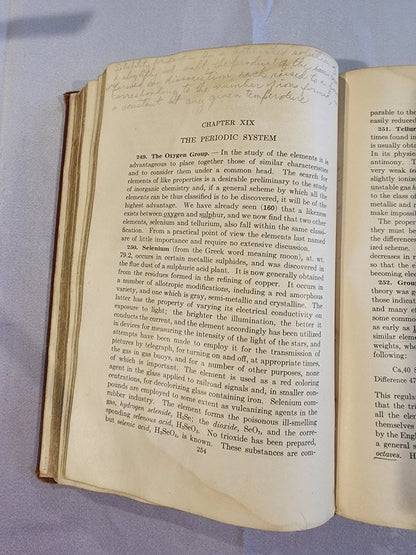 Solubility Product — In a saturated solution of
a slightly sol. salt, the product of the ions
formed on dissociation, each raised to a
corresponding to the number of ions formed is
a constant at any given temperature
CHAPTER XIX
THE PERIODIC SYSTEM
249. The Oxygen Group. — In the study of the elements it is
advantageous to place together those of similar characteristics
and to consider them under a common head. The search for
elements of like properties is a desirable preliminary to the study
of inorganic chemistry, and, if a general scheme by which all the
elements can be thus classified is to be discovered, it will be of the
highest advantage. We have already seen (160) that a likeness
exists between oxygen and sulphur, and we now find that two other
elements, selenium and tellurium, also fall within the same classi-
fication. From a practical point of view the elements last named
are of little importance and require no extensive discussion.
250. Selenium (from the Greek word meaning moon), at. wt.
79.2, occurs in certain metallic sulphides, and was discovered in
the flue dust of a sulphuric acid plant. It is now generally obtained
from the residues formed in the refining of copper. It occurs in
a number of allotropic modifications, including a red amorphous
variety, and one which is gray, semi-metallic and crystalline. The
latter has the property of varying its electrical conductivity on
exposure to light; the brighter the illumination, the better it
conducts the current, and the element accordingly has been utilized
in devices for measuring the intensity of the light of the stars, and
attempts have been made to employ it for the transmission of
pictures by telegraph, for turning on and off, at appropriate times,
the gas in gas buoys, and for a number of other purposes, none
of which is important. The element is used as a red coloring
agent in the glass applied to railroad signals and, in smaller con-
centrations, for decolorizing glass containing iron. Selenium com-
pounds are employed to some extent as vulcanizing agents in the
rubber industry. The element forms the poisonous ill-smelling
gas, hydrogen selenide, H₂Se; the dioxide, SeO₂, and the corre-
sponding selenous acid, H₂SeO₃. No trioxide has been prepared,
but selenic acid, H₂SeO₄, is known. These substances are com-
254
parable to those
easily reduced
251. Tellur
times found in
is usually obta
In its physica
antimony. T
very weak te
slightly ionize
unstable gas
to the class
metallic and
make impossi
The prope
they must be
the difference
ized scheme.
decreases in r
so that the
it becomes ev
252. Group
theory was g
those indicat
and many ef
some common
as early as
similar eleme
weights, whe
following:
Ca,40 S
Difference 4
This regular
that the tri
all the elem
themselves
by the Engli
a general s
octaves. H